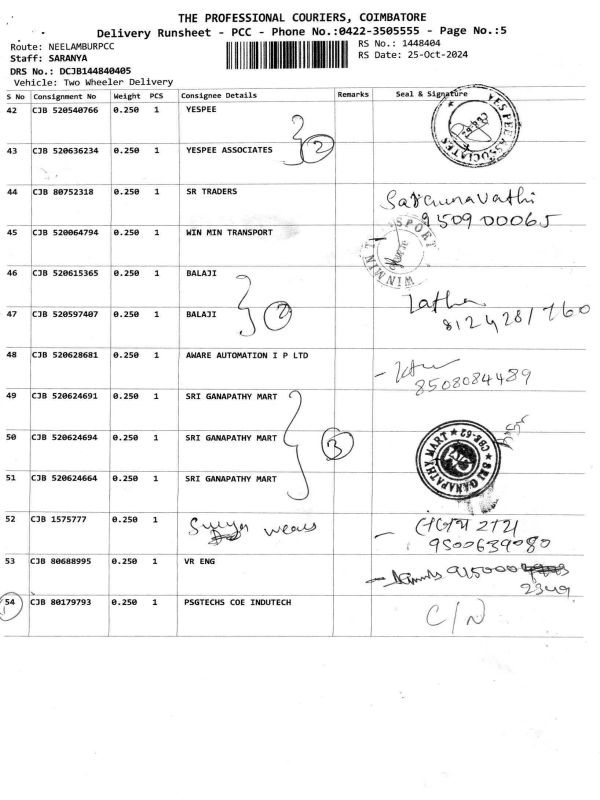 THE PROFESSIONAL COURIERS, COIMBATORE
Delivery Runsheet - PCC - Phone No.:0422-3505555 - Page No.:5
Route: NEELAMBURPCC
Staff: SARANYA
DRS No.: DCJB144840405
Vehicle: Two Wheeler Delivery
RS No.: 1448404
RS Date: 25-Oct-2024
S No Consignment No Weight PCS Consignee Details Remarks Seal & Signature
42 CJB 520540766 0.250 1 YESPEE
YESPEE ASSOCIATES
43 CJB 520636234 0.250 1 YESPEE ASSOCIATES
2
44 CJB 80752318 0.250 1 SR TRADERS
950900065
45 CJB 520064794 0.250 1 WIN MIN TRANSPORT
WIN MIN TRANSPORT
46 CJB 520615365 0.250 1 BALAJI
Latha
47 CJB 520597407 0.250 1 BALAJI
2
8124281760
48 CJB 520628681 0.250 1 AWARE AUTOMATION I P LTD
8508084489
49 CJB 520624691 0.250 1 SRI GANAPATHY MART
50 CJB 520624694 0.250 1 SRI GANAPATHY MART
3
SRI GANAPATHY MART CBE-62
51 CJB 520624664 0.250 1 SRI GANAPATHY MART
52 CJB 1575777 0.250 1 Surya wears
9500639080
53 CJB 80688995 0.250 1 VR ENG
915000
2349
54 CJB 80179793 0.250 1 PSGTECHS COE INDUTECH
C/N